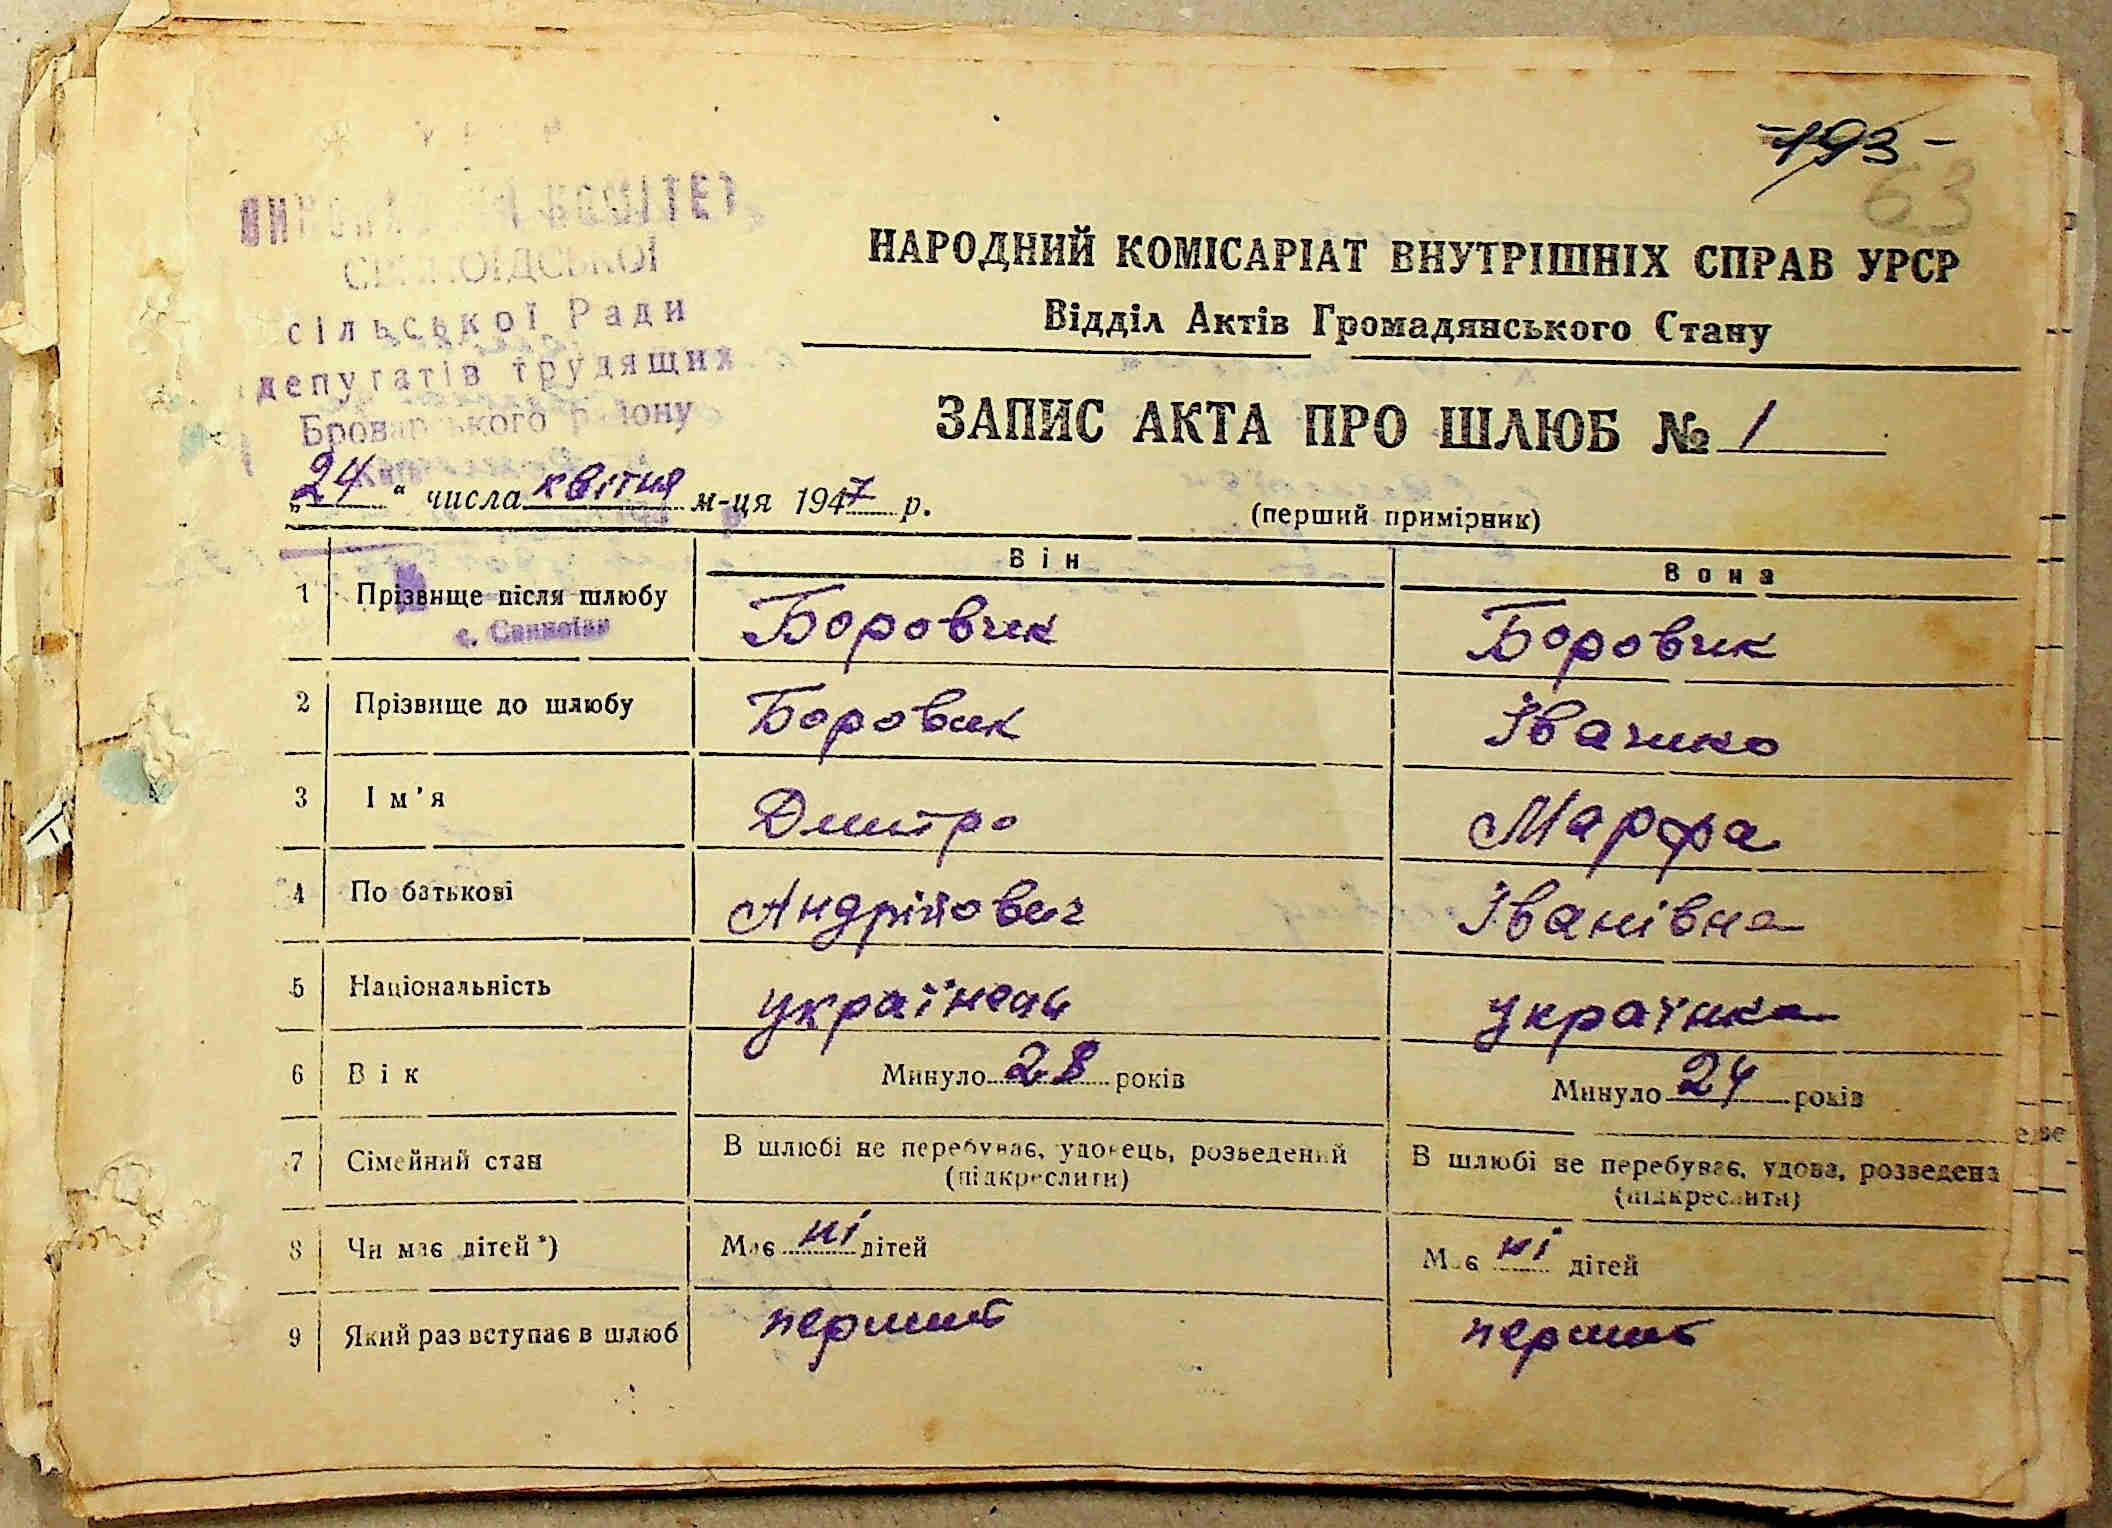 -193-
63
КОМІТЕТ
сільської Ради
депутатів трудящих
Броварського району
НАРОДНИЙ КОМІСАРІАТ ВНУТРІШНІХ СПРАВ УРСР
Відділ Актів Громадянського Стану
ЗАПИС АКТА ПРО ШЛЮБ № 1
„24“ числа квітня м-ця 1947 р.
(перший примірник)
Він Вона
1 Прізвище після шлюбу Боровик Боровик
2 Прізвище до шлюбу Боровик Івачико
3 Ім'я Дмитро Марфа
4 По батькові Андрійович Іванівна
5 Національність українець українка
6 Вік Минуло 28 років Минуло 24 років
7 Сімейний стан В шлюбі не перебуває, удовець, розведений В шлюбі не перебуває, удова, розведена
(підкреслити) (підкреслити)
8 Чи має дітей*) Має ні дітей Має ні дітей
9 Який раз вступає в шлюб перший перший